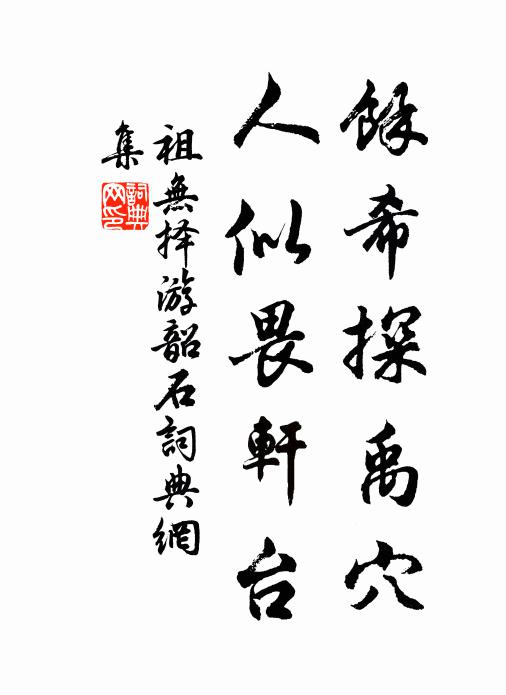 餘希探禹穴
人似畏軒台
祖無择游韶石詞典網
集
詞典網印